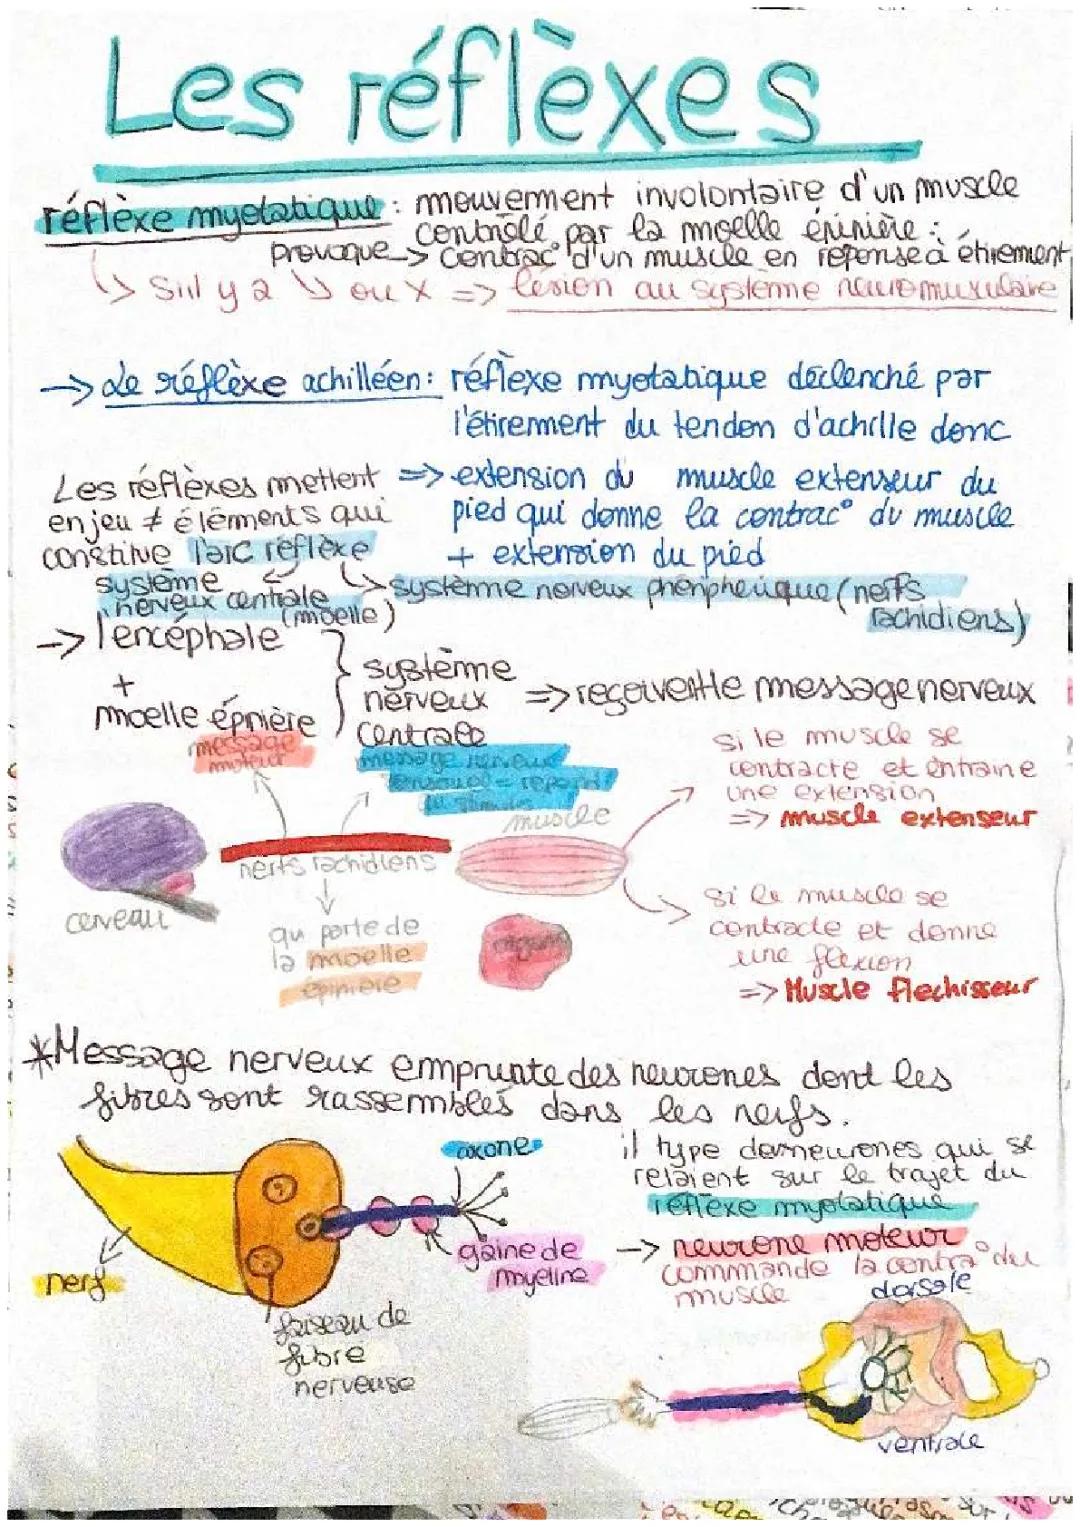 Les réflèxes
réflèxe myotatique : mouvement involontaire d'un muscle
contrôlé par la moelle épinière :
provoque -> contrac° d'un muscle en réponse à étirement
↳ S'il y a ↘ ou X => lésion au système neuromusculaire
-> Le réflèxe achilléen : réflexe myotatique déclenché par
l'étirement du tendon d'achille donc
=> extension du muscle extenseur du
pied qui donne la contrac° du muscle
+ extension du pied
Les réflèxes mettent
en jeu ≠ éléments qui
constitue l'arc réflèxe
système
nerveux centrale
(moelle)
système nerveux phériphérique (nerfs
rachidiens)
-> l'encéphale
+
moelle épinière
système
nerveux
centrale
=> reçoivent le message nerveux
message
moteur
message nerveux
sensoriel = répond
au stimulus
muscle
si le muscle se
contracte et entraine
une extension
=> muscle extenseur
nerfs rachidiens
cerveau
qui parte de
la moelle
épinière
organe
si le muscle se
contracte et donne
une flexion
=> Muscle flechisseur
*Message nerveux emprunte des neurones dont les
fibres sont rassemblés dans les nerfs.
axone
il type de neurones qui se
relaient sur le trajet du
réflèxe myotatique
gaine de
myéline
-> neurone moteur
commande la contra° du
muscle
nerf
dorsale
faiseau de
fibre
nerveuse
ventrale